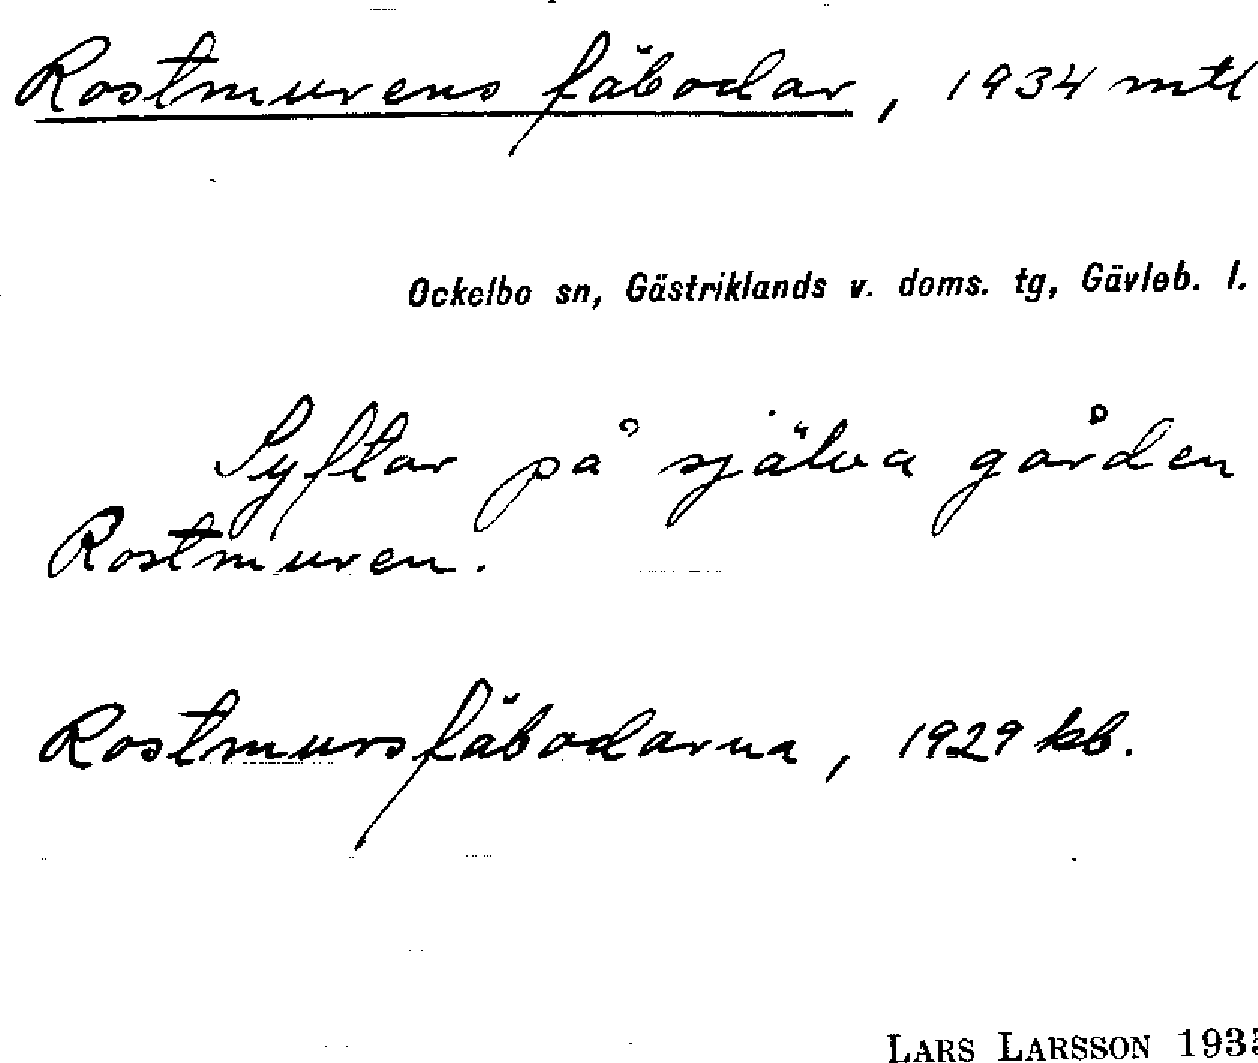 Rostmurens fäbodar, 1934 mtl
Ockelbo sn, Gästriklands v. doms. tg, Gävleb. l.
Syftar på själva gården
Rostmuren.
Rostmursfäbodarna, 1929 kb.
LARS LARSSON 1935